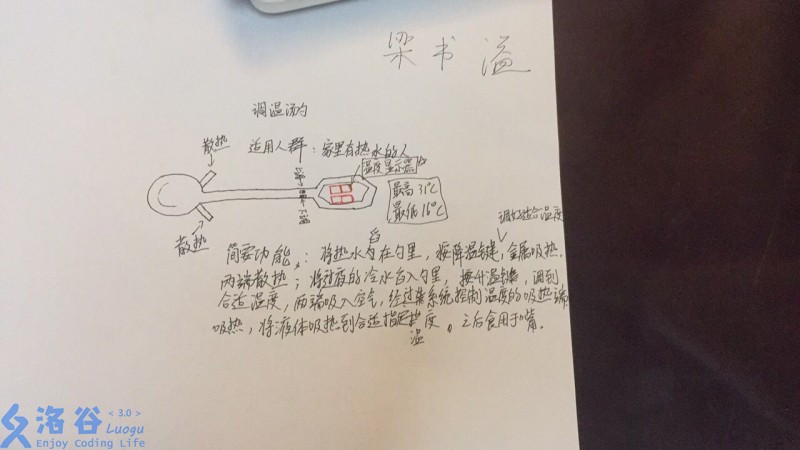 梁书溢
调温汤勺
散热
适用人群：家里有热水的人
温度显示器
最高31℃
最低16℃
散热
调好适合温度
舀
简要功能：将热水勺在勺里，按降温键，金属吸热.
两端散热；将过夜的冷水舀入勺里，按升温键，调到
合适温度，两端吸入空气，经过某系统控制温度的吸热端
吸热，将液体吸热到合适指定温度。之后食用于嘴.
洛谷 <3.0> Luogu
Enjoy Coding Life